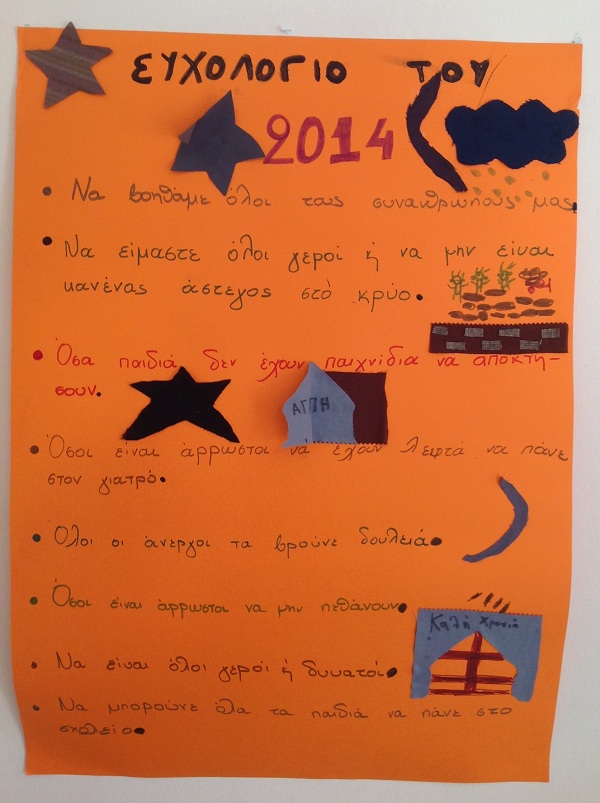 ΕΥΧΟΛΟΓΙΟ ΤΟΥ
2014
• Να βοηθάμε όλοι τους συνανθρώπους μας.
• Να είμαστε όλοι γεροί ή να μην είναι
κανένας άστεγος στο κρύο.
• Όσα παιδιά δεν έχουν παιχνίδια να αποκτή-
σουν.
ΑΓΠΗ
• Όσοι είναι άρρωστοι να έχουν λεφτά να πάνε
στον γιατρό.
• Όλοι οι άνεργοι να βρούνε δουλειά.
• Όσοι είναι άρρωστοι να μην πεθάνουν.
Καλή Χρονιά
• Να είναι όλοι γεροί ή δυνατοί.
• Να μπορούνε όλα τα παιδιά να πάνε στο
σχολείο.